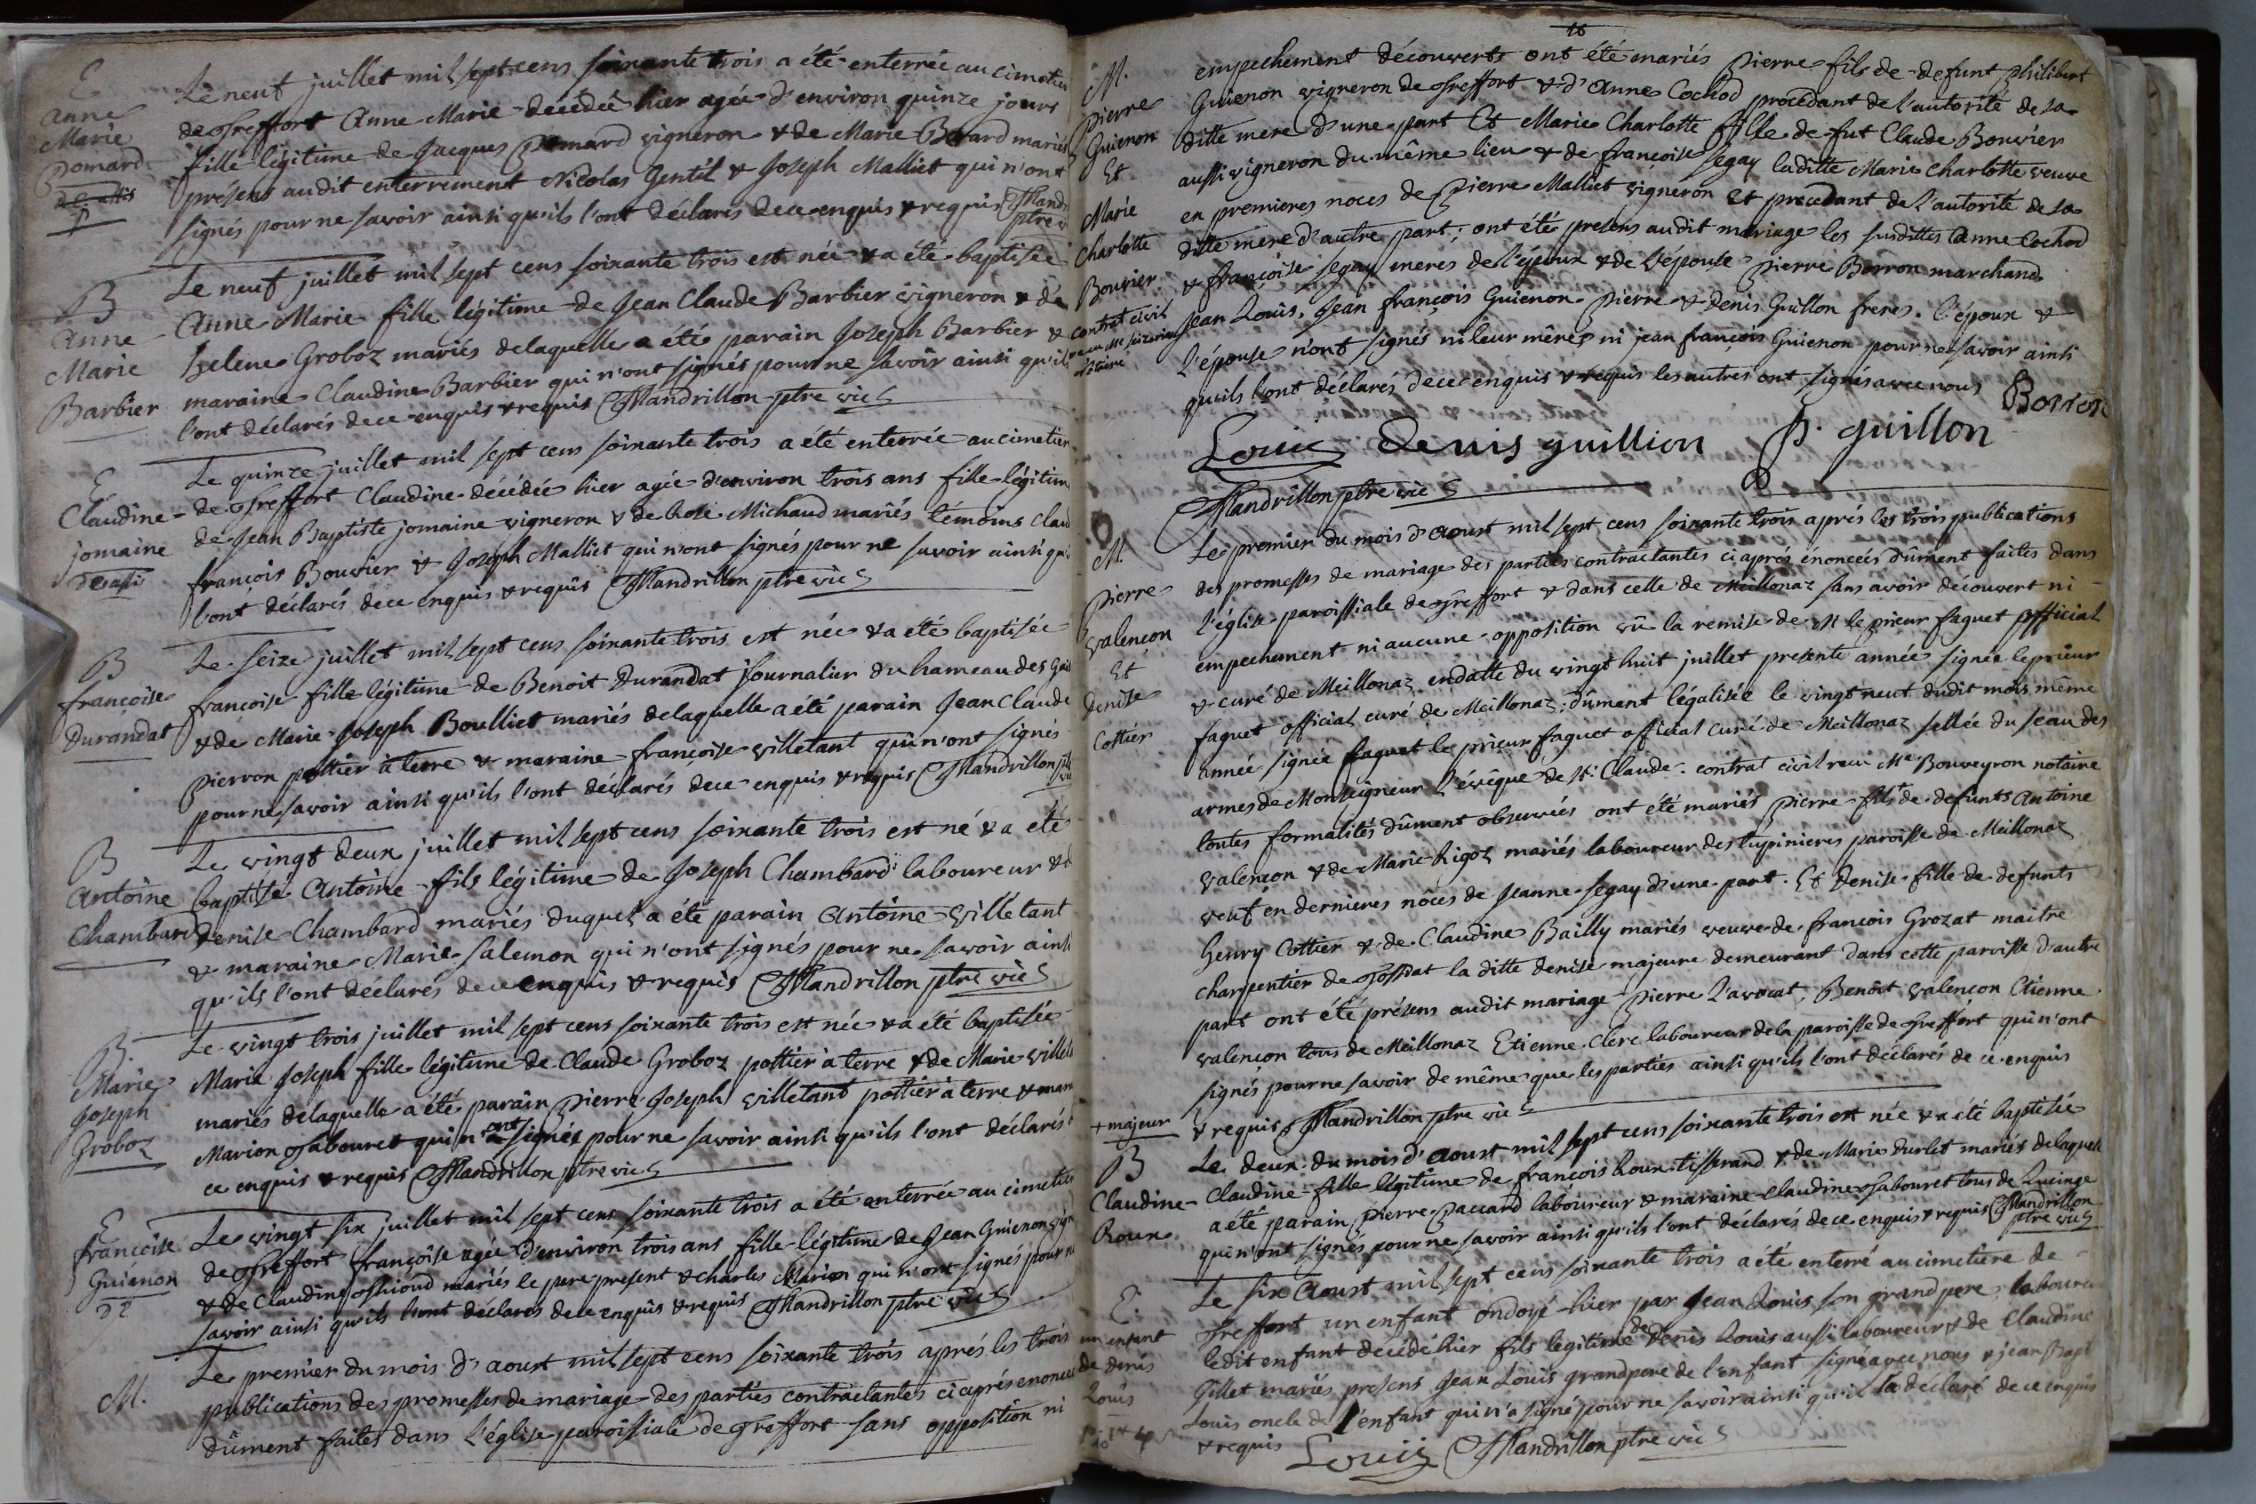 E
Anne
Marie
Pomard
Le neuf juillet mil sept cens soixante trois a été enterrée au cimetier
de Treffort Anne Marie decédée hier agée d'environ quinze jours
fille légitime de Jacques Pomard vigneron & de Marie Bavard mariés
présens audit enterrement Nicolas Gentil & Joseph Malliet qui n'ont
signés pour ne savoir ainsi qu'ils l'ont déclarés de ce enquis & requis Mandrillon
ptre vic
B
Anne
Marie
Barbier
Le neuf juillet mil sept cens soixante trois est née & a été baptisée
Anne Marie fille légitime de Jean Claude Barbier vigneron & de
helene Groboz mariés de laquelle a été parain Joseph Barbier &
maraine Claudine Barbier qui n'ont signés pour ne savoir ainsi qu'ils
l'ont déclarés de ce enquis & requis Mandrillon ptre vic
E
Claudine
jomaine
Le quinze juillet mil sept cens soixante trois a été enterrée au cimetier
de Treffort Claudine décédée hier agée d'environ trois ans fille légitime
de Jean Baptiste jomaine vigneron & de Rose Michaud mariés témoins Claude
françois Bouvier & Joseph Malliet qui n'ont signés pour ne savoir ainsi qu'
l'ont déclarés de ce enquis & requis Mandrillon ptre vic
B
françoise
Durandat
Le seize juillet mil sept cens soixante trois est née & a été baptisée
françoise fille légitime de Benoit Durandat journalier du hameau des
& de Marie Joseph Boulliet mariés de laquelle a été parain Jean Claude
pierron pottier à terre & maraine françoise villetant qui n'ont signés
pour ne savoir ainsi qu'ils l'ont déclarés de ce enquis & requis Mandrillon
B
Antoine
Chambard
Le vingt deux juillet mil sept cens soixante trois est né & a été
baptisé Antoine fils légitime de Joseph Chambard laboureur & de
Denise Chambard mariés duquel a été parain Antoine villetant
& maraine Marie salemon qui n'ont signés pour ne savoir ainsi
qu'ils l'ont déclarés de ce enquis & requis Mandrillon ptre vic
B.
Marie
Joseph
Groboz
Le vingt trois juillet mil sept cens soixante trois est née & a été baptisée
Marie Joseph fille légitime de Claude Groboz pottier à terre & de Marie
mariés de laquelle a été parain pierre Joseph villetant pottier à terre & mar
Marion Sabouret qui n'ont signés pour ne savoir ainsi qu'ils l'ont déclarés
ce enquis & requis Mandrillon ptre vic
E
françoise
Guienon
Le vingt six juillet mil sept cens soixante trois a été enterrée au cimetier
de Treffort françoise agée d'environ trois ans fille légitime de Jean Guienon
& de Claudine mariés le pere present & charles Marion qui n'ont signés pour ne
savoir ainsi qu'ils l'ont déclarés de ce enquis & requis Mandrillon ptre vic
M.
Le premier du mois d'aoust mil sept cens soixante trois après les trois
publications des promesses de mariage des parties contractantes ci après énoncées
dûment faites dans l'église paroissiale de Treffort sans opposition ni
M.
Pierre
Guienon
Et
Marie
Charlotte
Bouvier
contrat civil
empechement découverts ont été mariés Pierre fils de defunt philibert
Guienon vigneron de Treffort & d'Anne Cochod procédant de l'autorité de sa
ditte mere d'une part Et Marie Charlotte fille de fut Claude Bouvier
aussi vigneron du même lieu & de françoise segay laditte Marie Charlotte veuve
en premieres noces de Pierre Malliet vigneron et procedant de l'autorité de sa
ditte mere d'autre part; ont été presens audit mariage les susdittes Anne Cochod
& françoise segay meres de l'époux & de l'épouse Pierre Borron marchand
Jean Louis, Jean françois Guienon Pierre & Denis Guillon freres. l'époux &
l'épouse n'ont signés ni leur mères ni jean françois Guienon pour ne savoir ainsi
qu'ils l'ont déclarés de ce enquis & requis les autres ont signés avec nous
Borron
Louis Denis guillion p. guillon
Mandrillon ptre vic
M.
Pierre
valençon
Et
Denise
Cottier
Le premier du mois d'aoust mil sept cens soixante trois après les trois publications
des promesses de mariage des parties contractantes ci après énoncées dûment faites dans
l'église paroissiale de Treffort & dans celle de Meillonaz sans avoir découvert ni
empechement ni aucune opposition vû la remise de Mr le prieur faguet official
& curé de Meillonaz en datte du vingt huit juillet presente année signée le prieur
faguet official curé de Meillonaz; dûment légalisée le vingt neuf dudit mois même
année signée faguet le prieur faguet official curé de Meillonaz sellée du seau des
armes de Monseigneur l'évêque de St. Claude. contrat civil recu Me Bouveyron notaire
toutes formalités dûment observées ont été mariés pierre fils de defunts Antoine
valençon & de Marie Rigot mariés laboureur des lupinieres paroisse de Meillonaz
veuf en dernieres nôces de Jeanne segay d'une part. Et Denise fille de defunts
henry Cottier & de Claudine Bailly mariés veuve de françois Grozat maitre
charpentier de la ditte denise majeure demeurant dans cette paroisse d'autre
part ont été présens audit mariage Pierre l'avocat, Benoit valençon Etienne
valençon tous de Meillonaz Etienne Clerc laboureur de la paroisse de Treffort qui n'ont
signés pour ne savoir de même que les parties ainsi qu'ils l'ont déclarés de ce enquis
& requis Mandrillon ptre vic
+ majeur
B
Claudine
Roux
Le deux du mois d'aoust mil sept cens soixante trois est née & a été baptisée
Claudine fille légitime de françois Roux tisserand & de Marie Durlet mariés de laquelle
a été parain Pierre Paccard laboureur & maraine Claudine Sabouret tous de Lucinge
qui n'ont signés pour ne savoir ainsi qu'ils l'ont déclarés de ce enquis & requis Mandrillon
ptre vic
E.
un enfant
de denis
Louis
Le six Aoust mil sept cens soixante trois a été enterré au cimetiere de
Treffort un enfant ondoyé hier par Jean Louis son grand pere laboureur
ledit enfant decédé hier fils légitime de Denis Louis aussi laboureur & de Claudine
Gillet mariés presens Jean Louis grandpere de l'enfant signé avec nous & jean Bapt
Louis oncle de l'enfant qui n'a signé pour ne savoir ainsi qu'il l'a déclaré de ce enquis
& requis Louis Mandrillon ptre vic